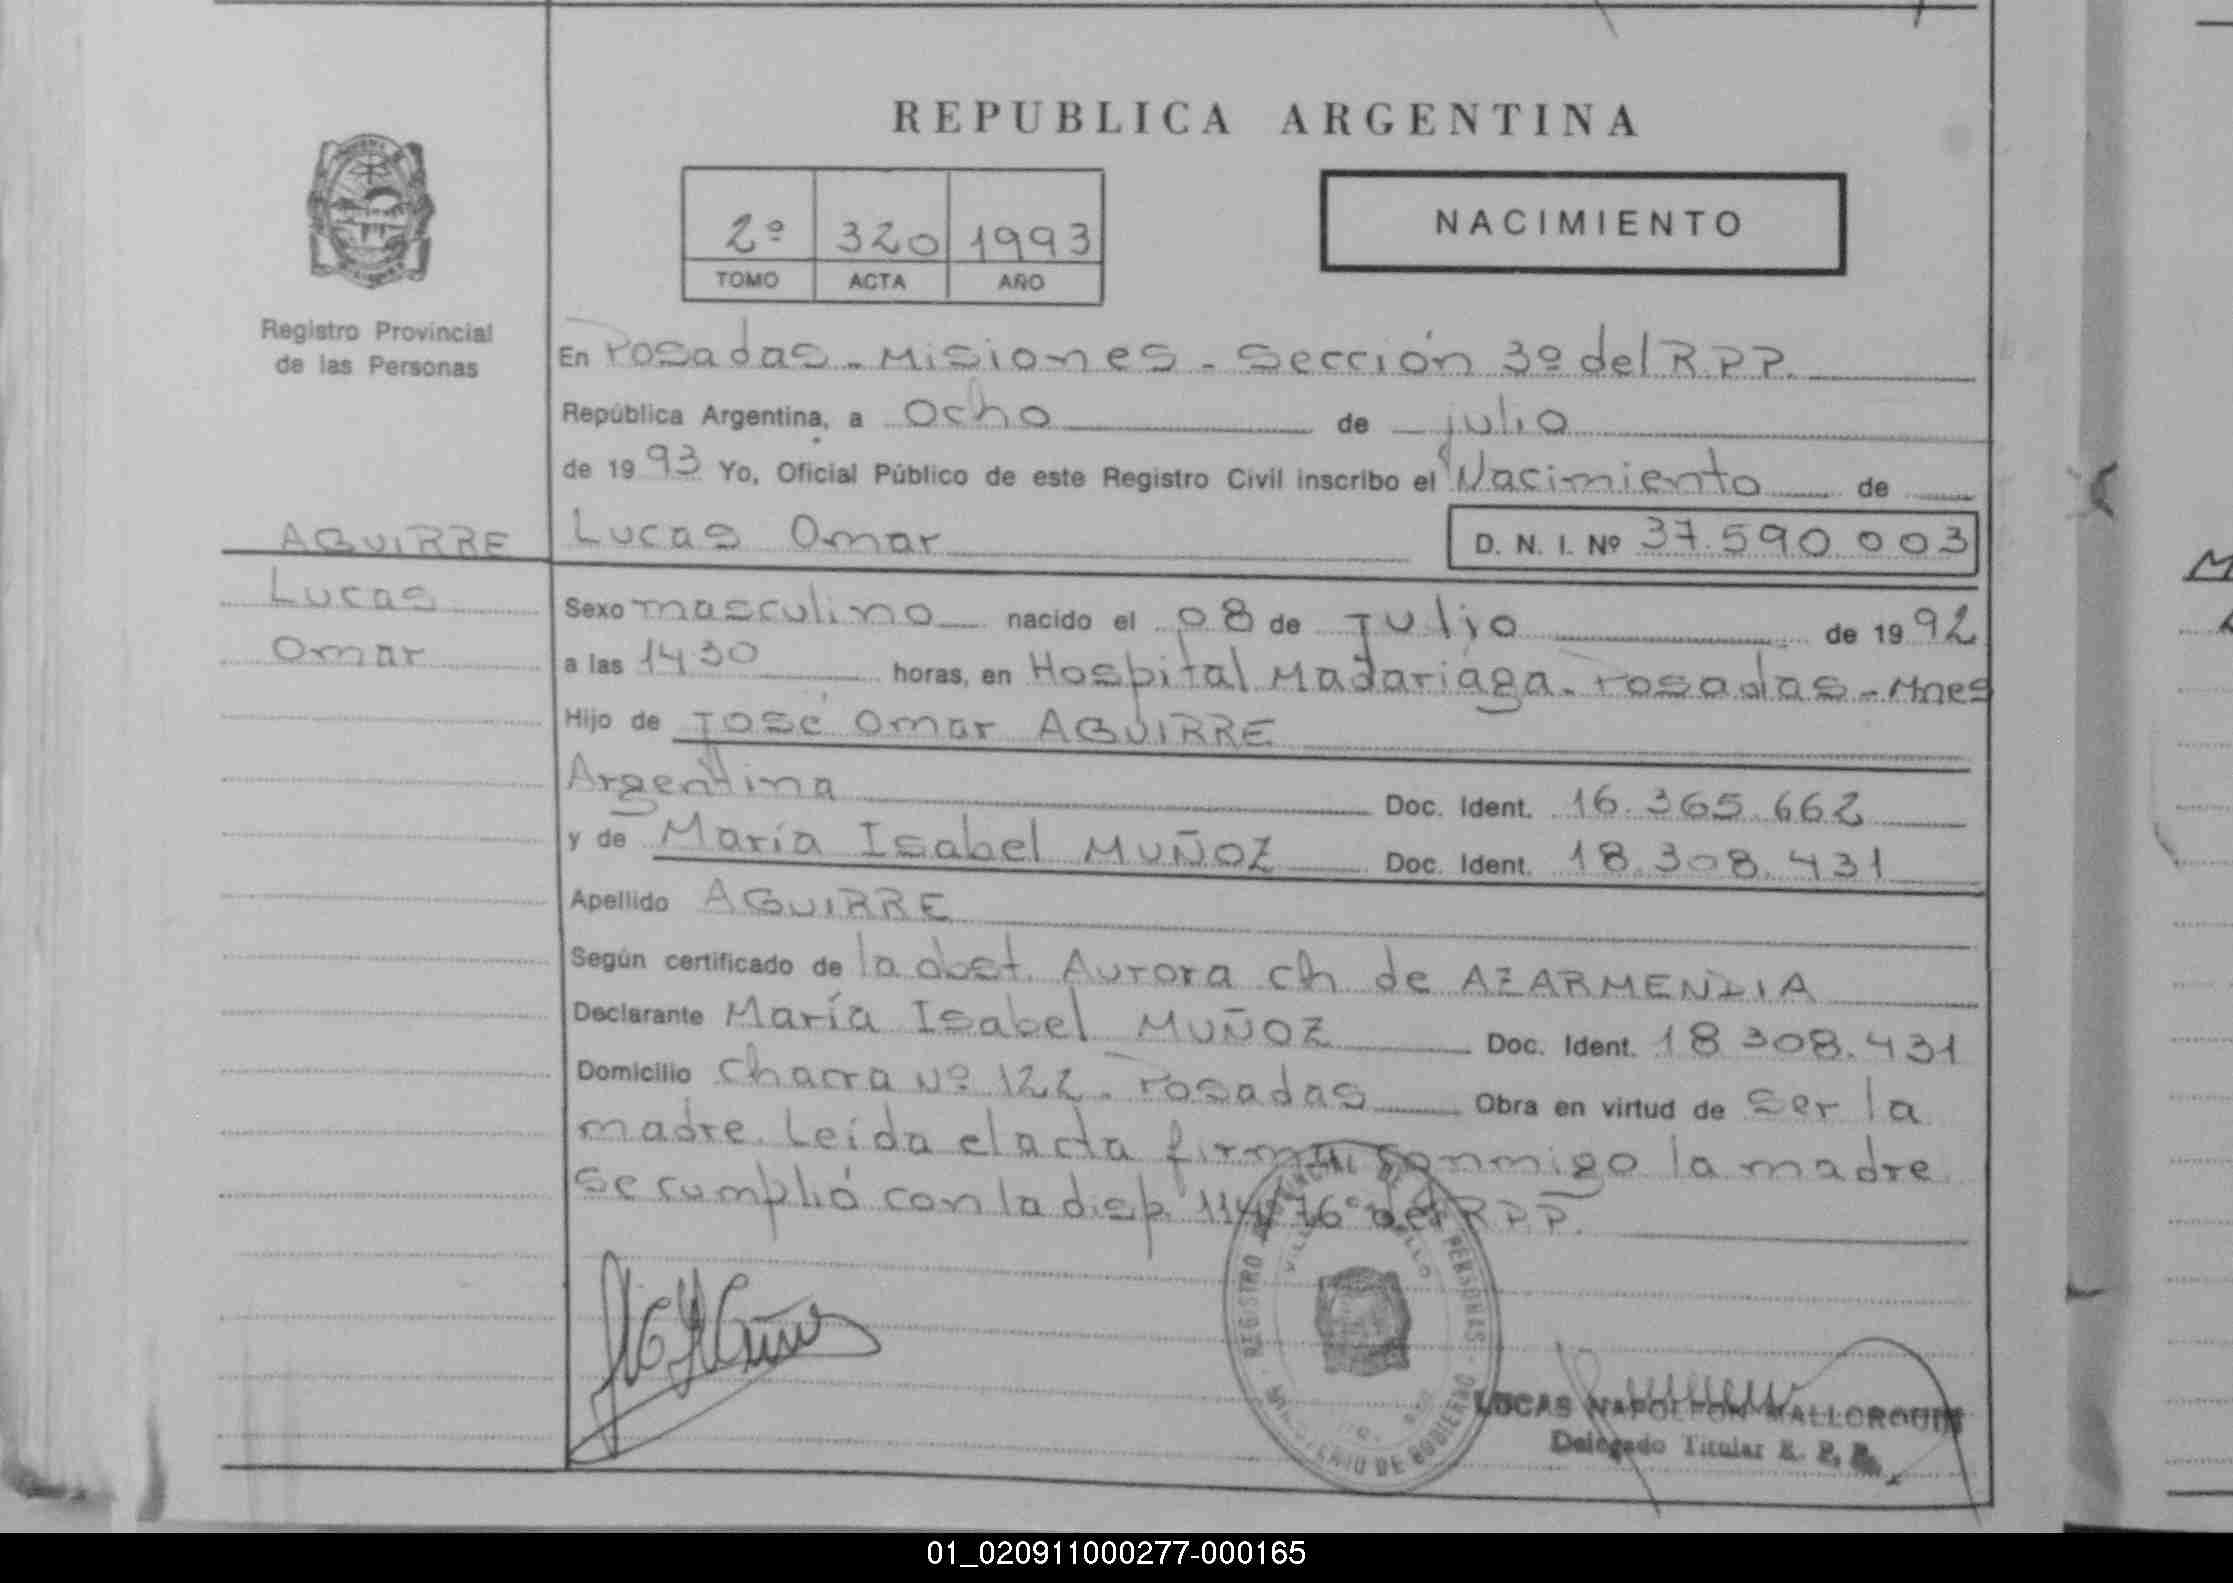 REPUBLICA ARGENTINA
2º 320 1993
TOMO ACTA AÑO
NACIMIENTO
Registro Provincial
de las Personas
En Posadas - Misiones - Sección 3º del R.P.P.
República Argentina, a ocho de julio
de 1993 Yo, Oficial Público de este Registro Civil inscribo el Nacimiento de
Lucas Omar D. N. I. Nº 37.590.003
AGUIRRE
Lucas
Omar
Sexo masculino nacido el 08 de Julio de 1992
a las 1430 horas, en Hospital Madariaga - Posadas - Mnes
Hijo de José Omar AGUIRRE
Argentina Doc. Ident. 16.365.662
y de María Isabel MUÑOZ Doc. Ident. 18.308.431
Apellido AGUIRRE
Según certificado de la obst. Aurora ch de AZARMENDIA
Declarante María Isabel MUÑOZ Doc. Ident. 18 308.431
Domicilio Chacra Nº 122 - Posadas Obra en virtud de ser la
madre. Leída el acta firma conmigo la madre
se cumplió con la disp. 114/76 del R.P.P.
REGISTRO PROVINCIAL DE LAS PERSONAS
MINISTERIO DE GOBIERNO
LUCAS NAPOLEON MALLORQUIN
Delegado Titular R. P. P.
01_020911000277-000165